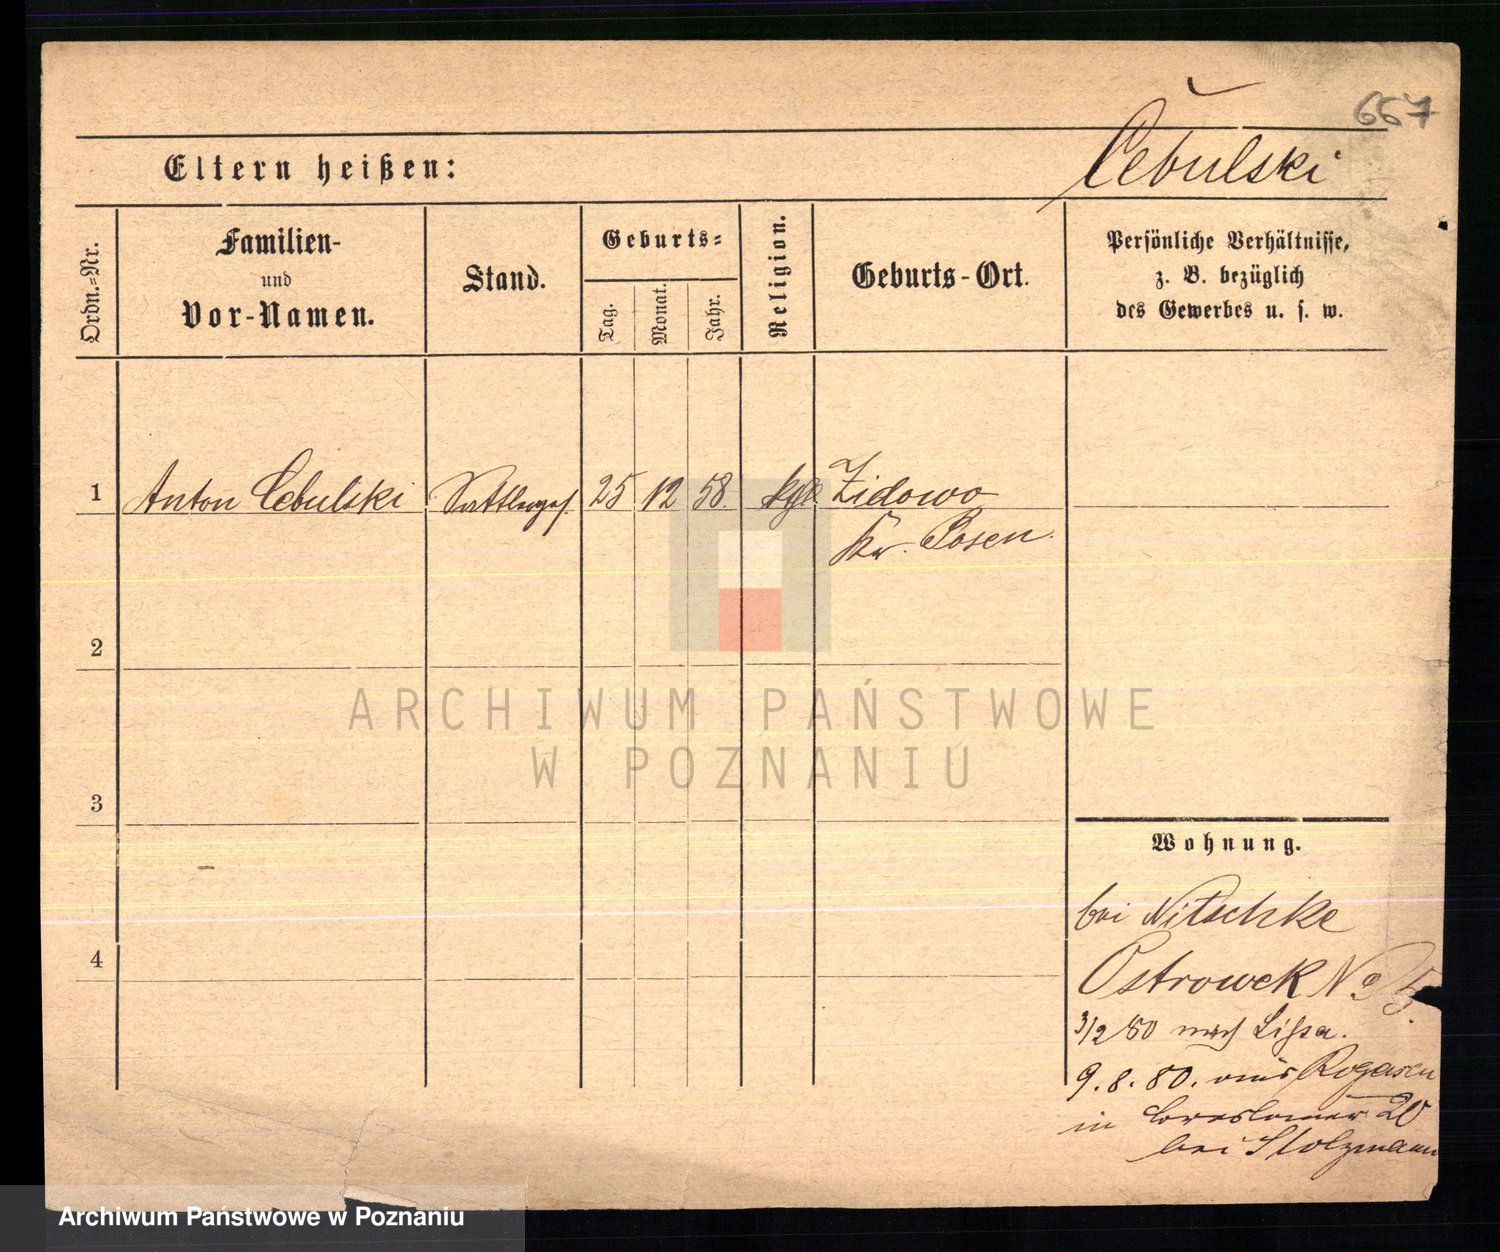 667
Cebulski
Eltern heißen:
Ordn.-Nr.
Familien-
und
Vor-Namen.
Stand.
Geburts-
Tag.
Monat.
Jahr.
Religion.
Geburts-Ort.
Persönliche Verhältnisse,
z. B. bezüglich
des Gewerbes u. s. w.
1 Anton Cebulski Sattlerges. 25 12 58. kth Zidowo
Kr. Posen
2
3
4
ARCHIWUM PAŃSTWOWE
W POZNANIU
Wohnung.
bei Nitschke
Ostrowek No 5.
3/2 80 nach Lissa.
9.8.80. aus Rogasen
in Breslauer 20
bei Stolzmann
Archiwum Państwowe w Poznaniu